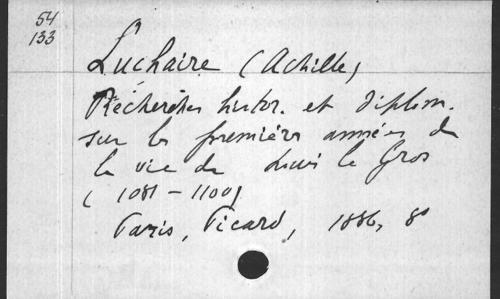 54
133
Luchaire (Achille)
Recherches histor. et diplom.
sur les premières années de
la vie de Louis le Gros
(1081-1100)
Paris, Picard, 1886, 8°